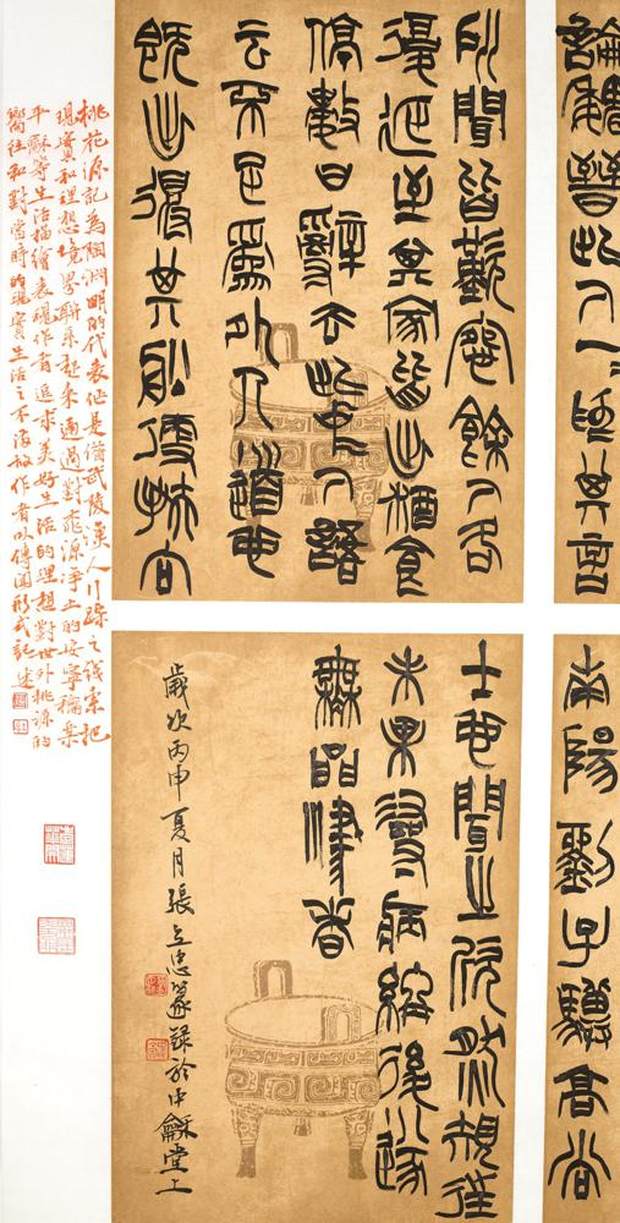 論魏晉此人一一為具言
所聞皆歎惋餘人各
復延至其家皆出酒食
停數日辭去此中人語
云不足為外人道也
既出得其船便扶向
南陽劉子驥高尚
士也聞之欣然規往
未果尋病終後遂
無問津者
歲次丙申夏月張立忠篆錄於中龢堂上
桃花源記為陶淵明的代表作是借武陵漁人行蹤之線索把
現實和理想境界聯系起來通過對桃源淨土的安寧穩樂
平龢等生活描繪表現作者追求美好生活的理想對世外桃源的
嚮往和對當時的現實生活之不滿故作者以傳圖形式記述